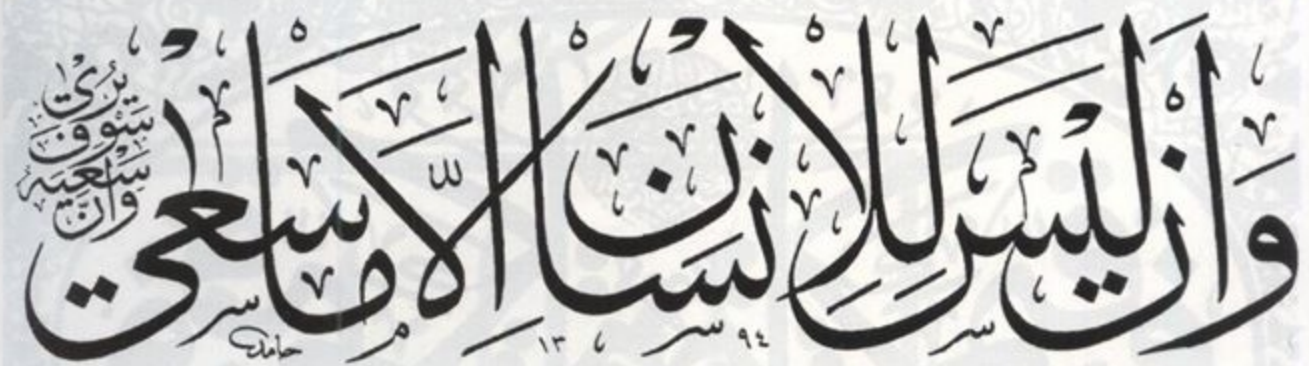 وَاَنْ لَيْسَ لِلْاِنْسَانِ اِلَّا مَا سَعٰى
وَاَنَّ سَعْيَهُ سَوْفَ يُرٰى
حامد ١٣٩٤